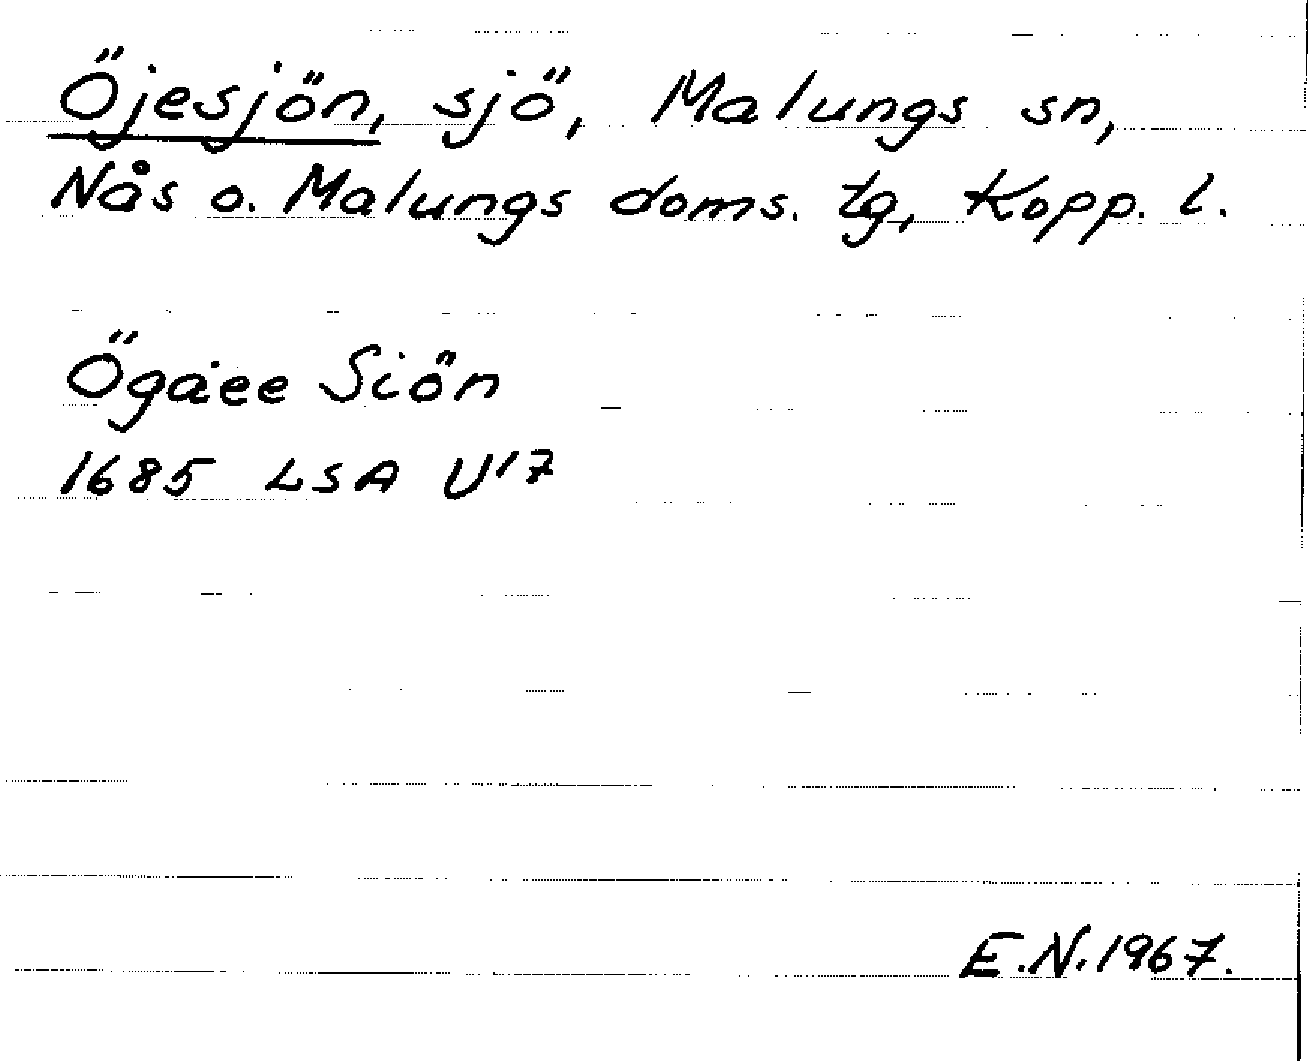 Öjesjön, sjö, Malungs sn,
Nås o. Malungs doms. tg, Kopp. l.
Ögaee Siön
1685 LSA U17
E.N. 1967.